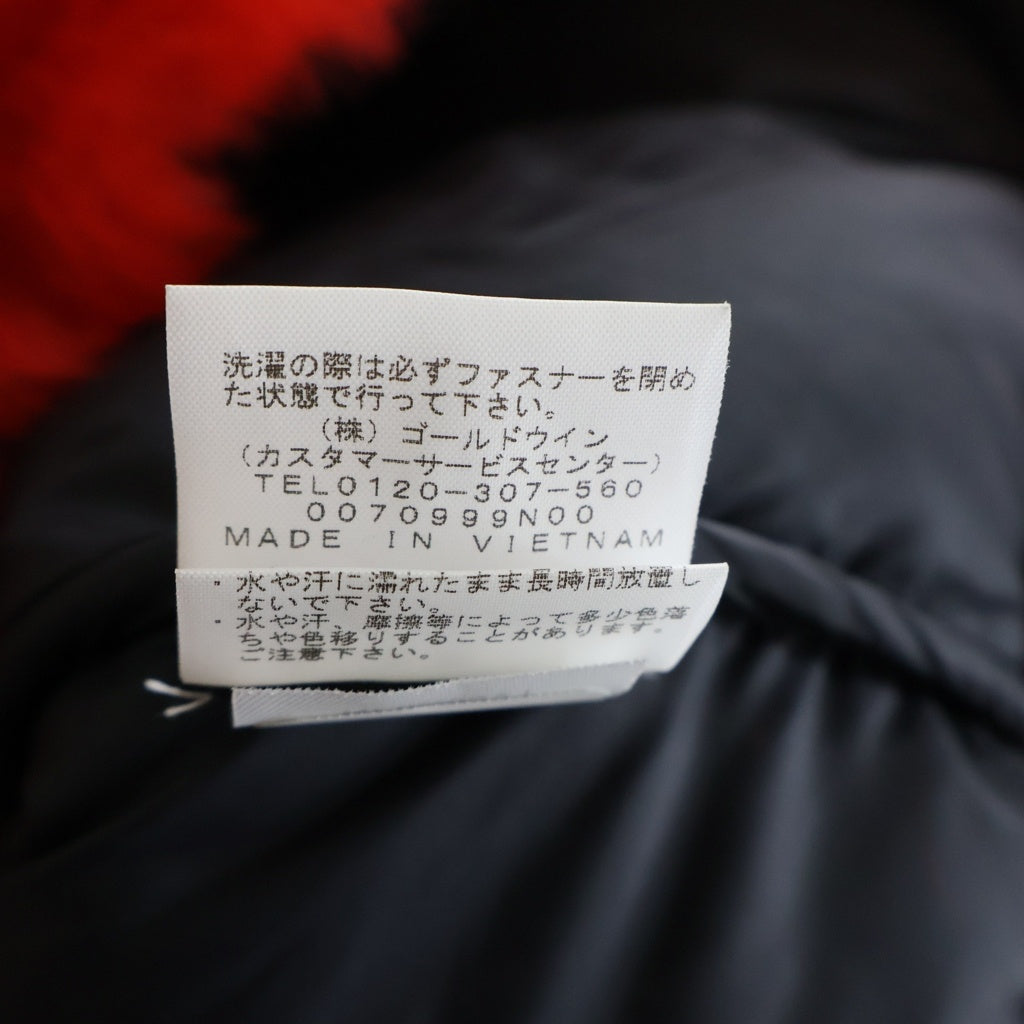 洗濯の際は必ずファスナーを閉め
た状態で行って下さい。
（株）ゴールドウイン
（カスタマーサービスセンター）
TEL0120-307-560
0070999N00
MADE IN VIETNAM
・水や汗に濡れたまま長時間放置し
ないで下さい。
・水や汗、摩擦等によって多少色落
ちや色移りすることがあります。
ご注意下さい。